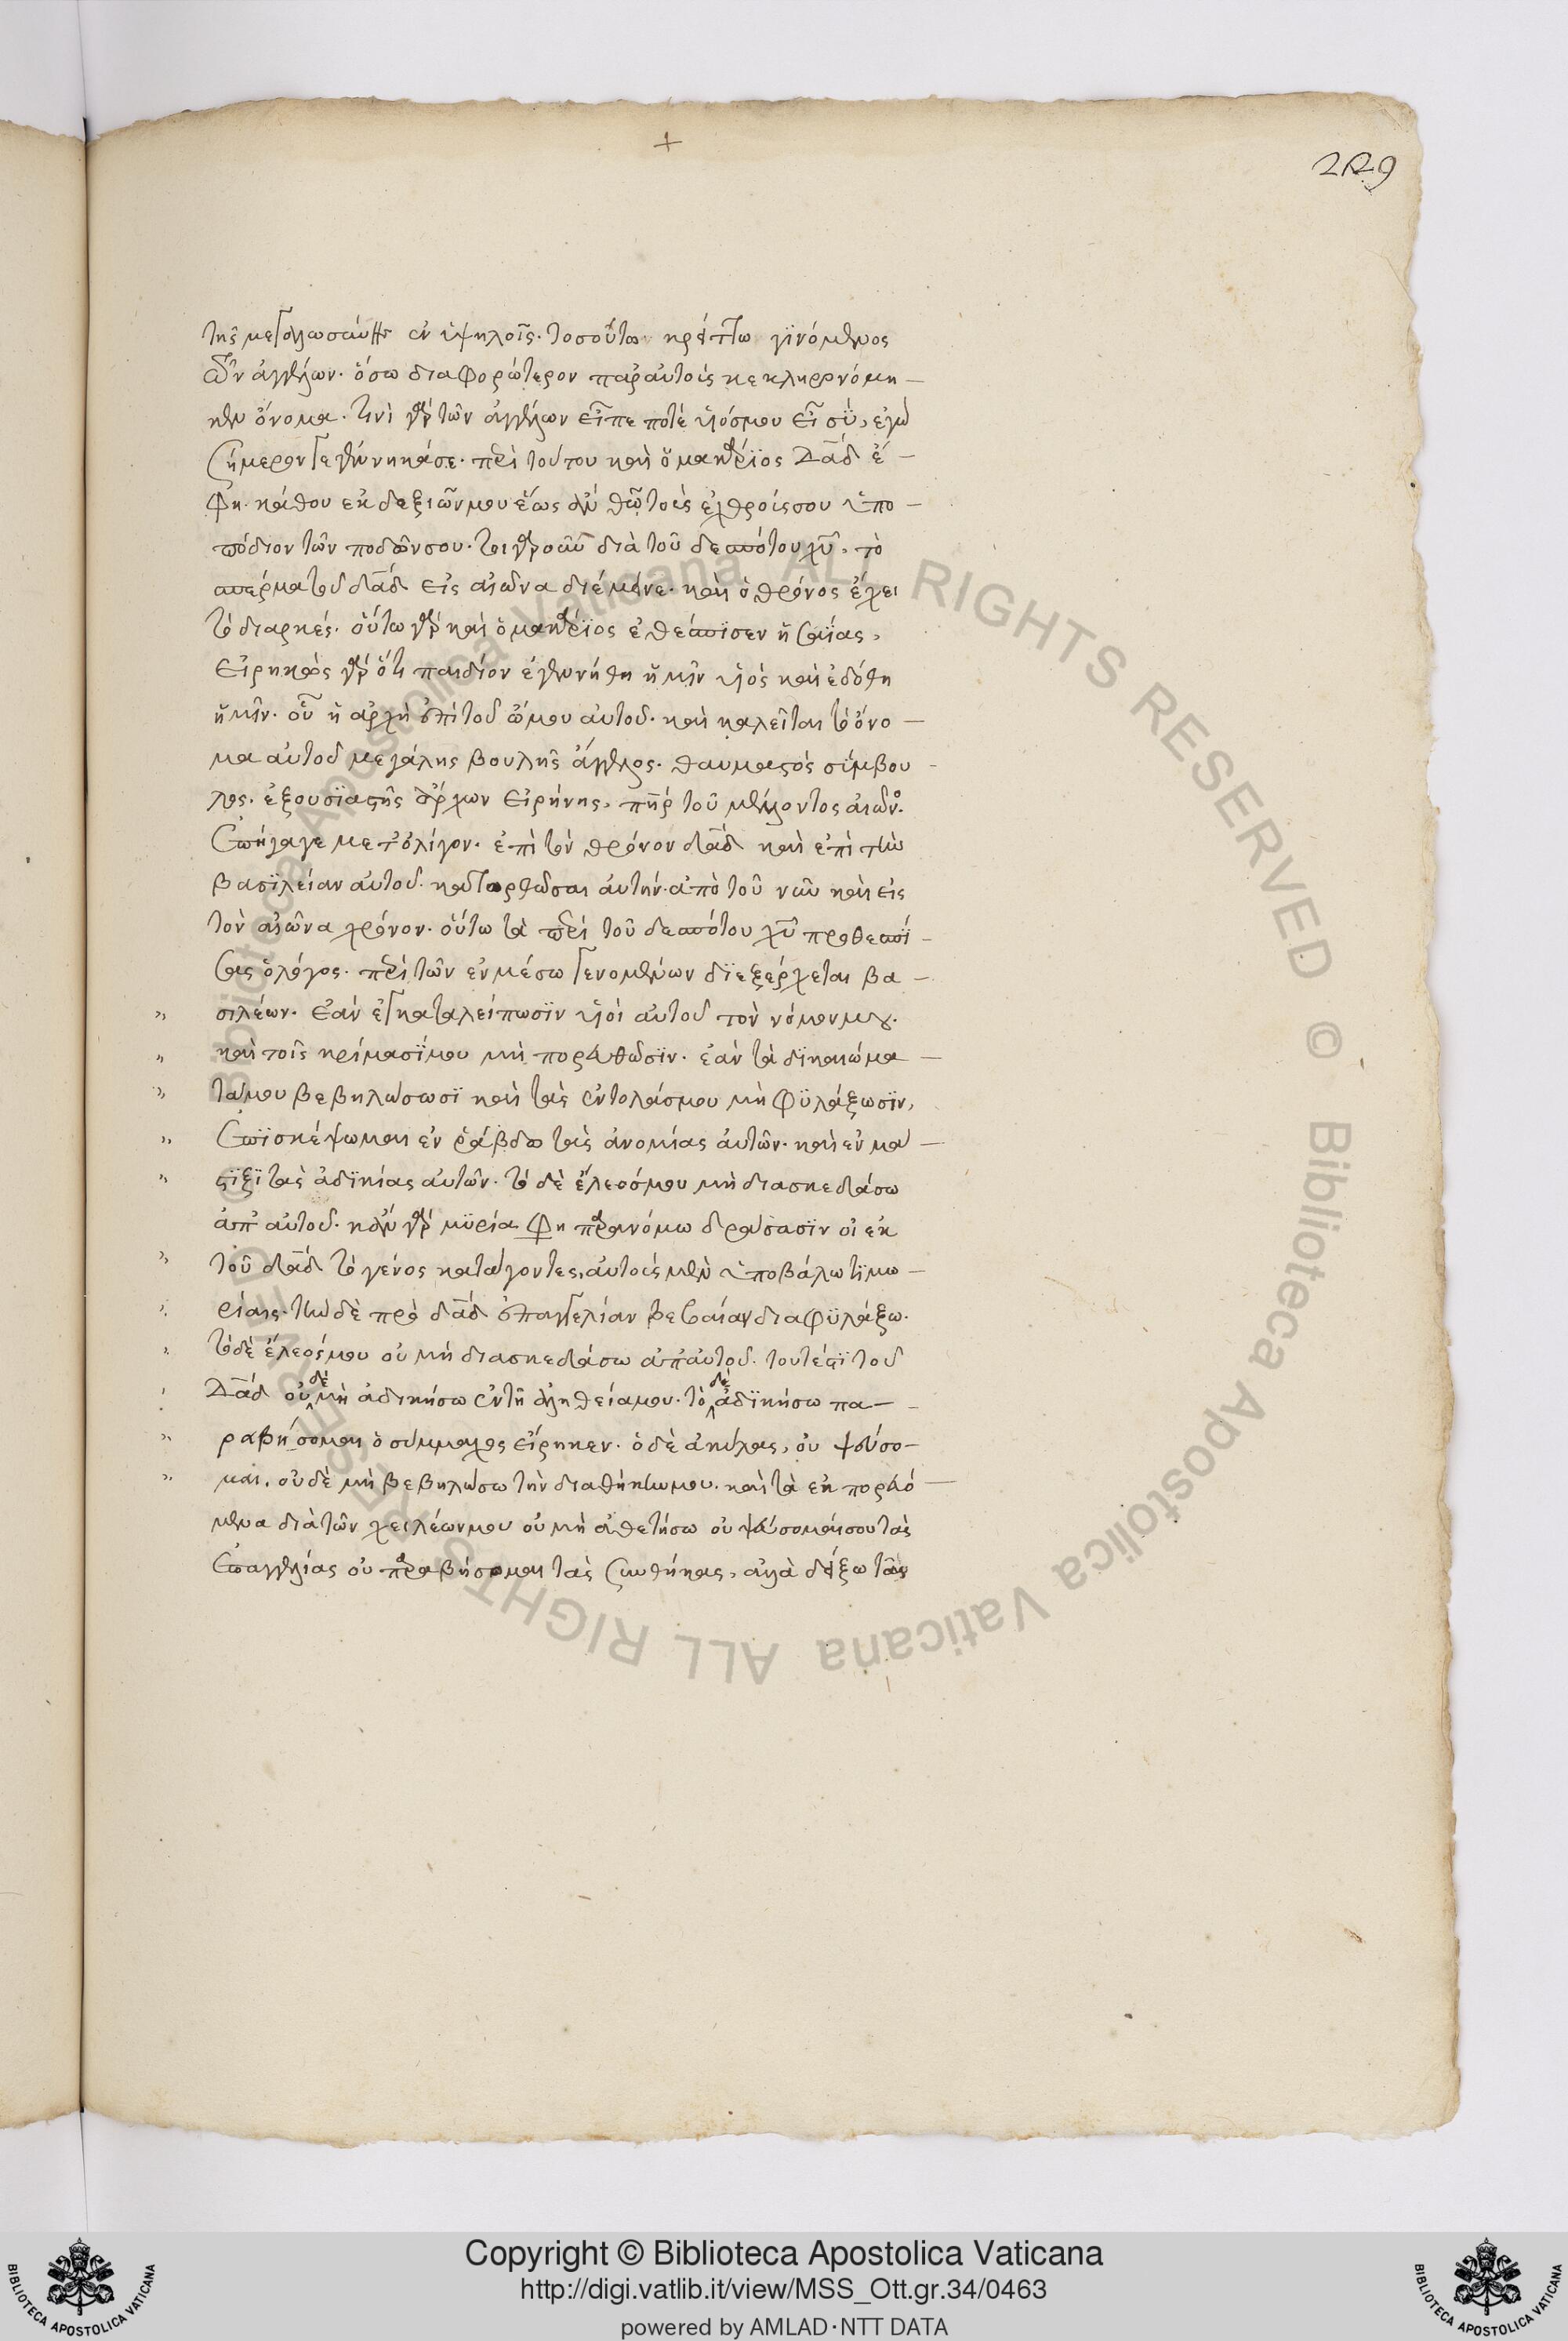 +
229
τῆς μεγαλωσύνης ἐν ὑψηλοῖς. τοσούτω κρείττω γϊνόμενος
τῶν ἀγγέλων. ὅσω διαφορώτερον παρ αὐτοὺς κεκληρονόμη–
κεν ὄνομα. τινὶ γὰρ τῶν ἀγγέλων εἶπε ποτὲ υἱόσμου εἶ σὺ, ἐγὼ
σήμερον γεγέννηκάσε. περὶ τούτου καὶ ὁ μακάρϊος Δᾱδ ἔ–
φη. κάθου ἐκ δεξιῶνμου ἕως ἂν θῶ τοὺς ἐχθρούςσου ὑπο–
πόδιον τῶν ποδῶνσου. τοιγαροῦν διὰ τοῦ δεσπότου χῡ, τὸ
σπέρμα τοῦ δᾱδ εἰς αἰῶνα διέμεινε. καὶ ὁ θρόνος ἔχει
τὸ διαρκές. οὕτω γὰρ καὶ ὁ μακάρϊος ἐθέσπϊσεν ἡσαΐας,
εἰρηκὼς γὰρ ὅτι παιδίον ἐγεννήθη ἡμῖν υἱὸς καὶ ἐδόθη
ἡμῖν. οὗ ἡ ἀρχὴ ἐπὶ τοῦ ὤμου αὐτοῦ. καὶ καλεῖται τὸ ὄνο–
μα αὐτοῦ μεγάλης βουλῆς ἄγγελος. θαυμαστὸς σύμβου–
λος. ἐξουσϊαστὴς ἄρχων εἰρήνης, πη̄ρ τοῦ μέλλοντος αἰῶνος.
ἐπήγαγε μετ ὀλίγον. ἐπὶ τὸν θρόνον δᾱδ καὶ ἐπὶ τὴν
βασϊλείαν αὐτοῦ. κατορθῶσαι αὐτήν. ἀπὸ τοῦ νῦν καὶ εἰς
τὸν αἰῶνα χρόνον. οὕτω τὰ περὶ τοῦ δεσπότου χῡ προθεσπί–
σας ὁ λόγος. περὶ τῶν ἐν μέσω γενομένων δϊεξέρχεται βα–
» σιλέων. ἐὰν ἐγκαταλείπωσϊν υἱοὶ αὐτοῦ τὸν νόμον μου.
» καὶ τοῖς κρίμασίμου μὴ πορευθῶσϊν. ἐὰν τὰ δϊκαιώμα–
» τάμου βεβηλώσωσϊ καὶ τὰς ἐντολάσμου μὴ φϋλάξωσϊν,
» ἐπϊσκέψωμαι ἐν ῥάβδω τὰς ἀνομίας αὐτῶν. καὶ ἐν μά–
» στϊξϊ τὰς ἀδϊκίας αὐτῶν. τὸ δὲ ἔλεοσμου μὴ διασκεδάσω
ἀπ αὐτοῦ. κἂν γὰρ μϋρία φη παρανόμω δράσασϊν οἱ ἐκ
» τοῦ δᾱδ τὸ γένος κατάγοντες, αὐτοὺς μὲν ὑποβάλω τϊμω–
» ρίαις. τὴν δὲ πρὸ δᾱδ ἐπαγγελίαν βεβαίαν διαφϋλάξω.
» τὸ δὲ ἔλεοςμου οὐ μὴ διασκεδάσω ἀπ αὐτοῦ. τουτέστϊ τοῦ
» Δᾱδ οὐ δὲ μὴ ἀδικήσω ἐν τῇ ἀληθείαμου. τὸ δὲ ἀδϊκήσω πα–
» ραβήσομαι ὁ σύμμαχος εἴρηκεν. ὁ δὲ ἀκύλας, οὐ ψεύσο–
» μαι. οὐδὲ μὴ βεβηλώσω τὴν διαθήκηνμου. καὶ τὰ ἐκπορευό–
μενα διὰ τῶν χειλέωνμου οὐ μὴ ἀθετήσω οὐ ψεύσομαί σου τὰς
ἐπαγγελίας οὐ παραβήσομαι τὰς συνθήκας, ἀλλὰ δείξω τὰς
Copyright © Biblioteca Apostolica Vaticana
http://digi.vatlib.it/view/MSS_Ott.gr.34/0463
powered by AMLAD·NTT DATA